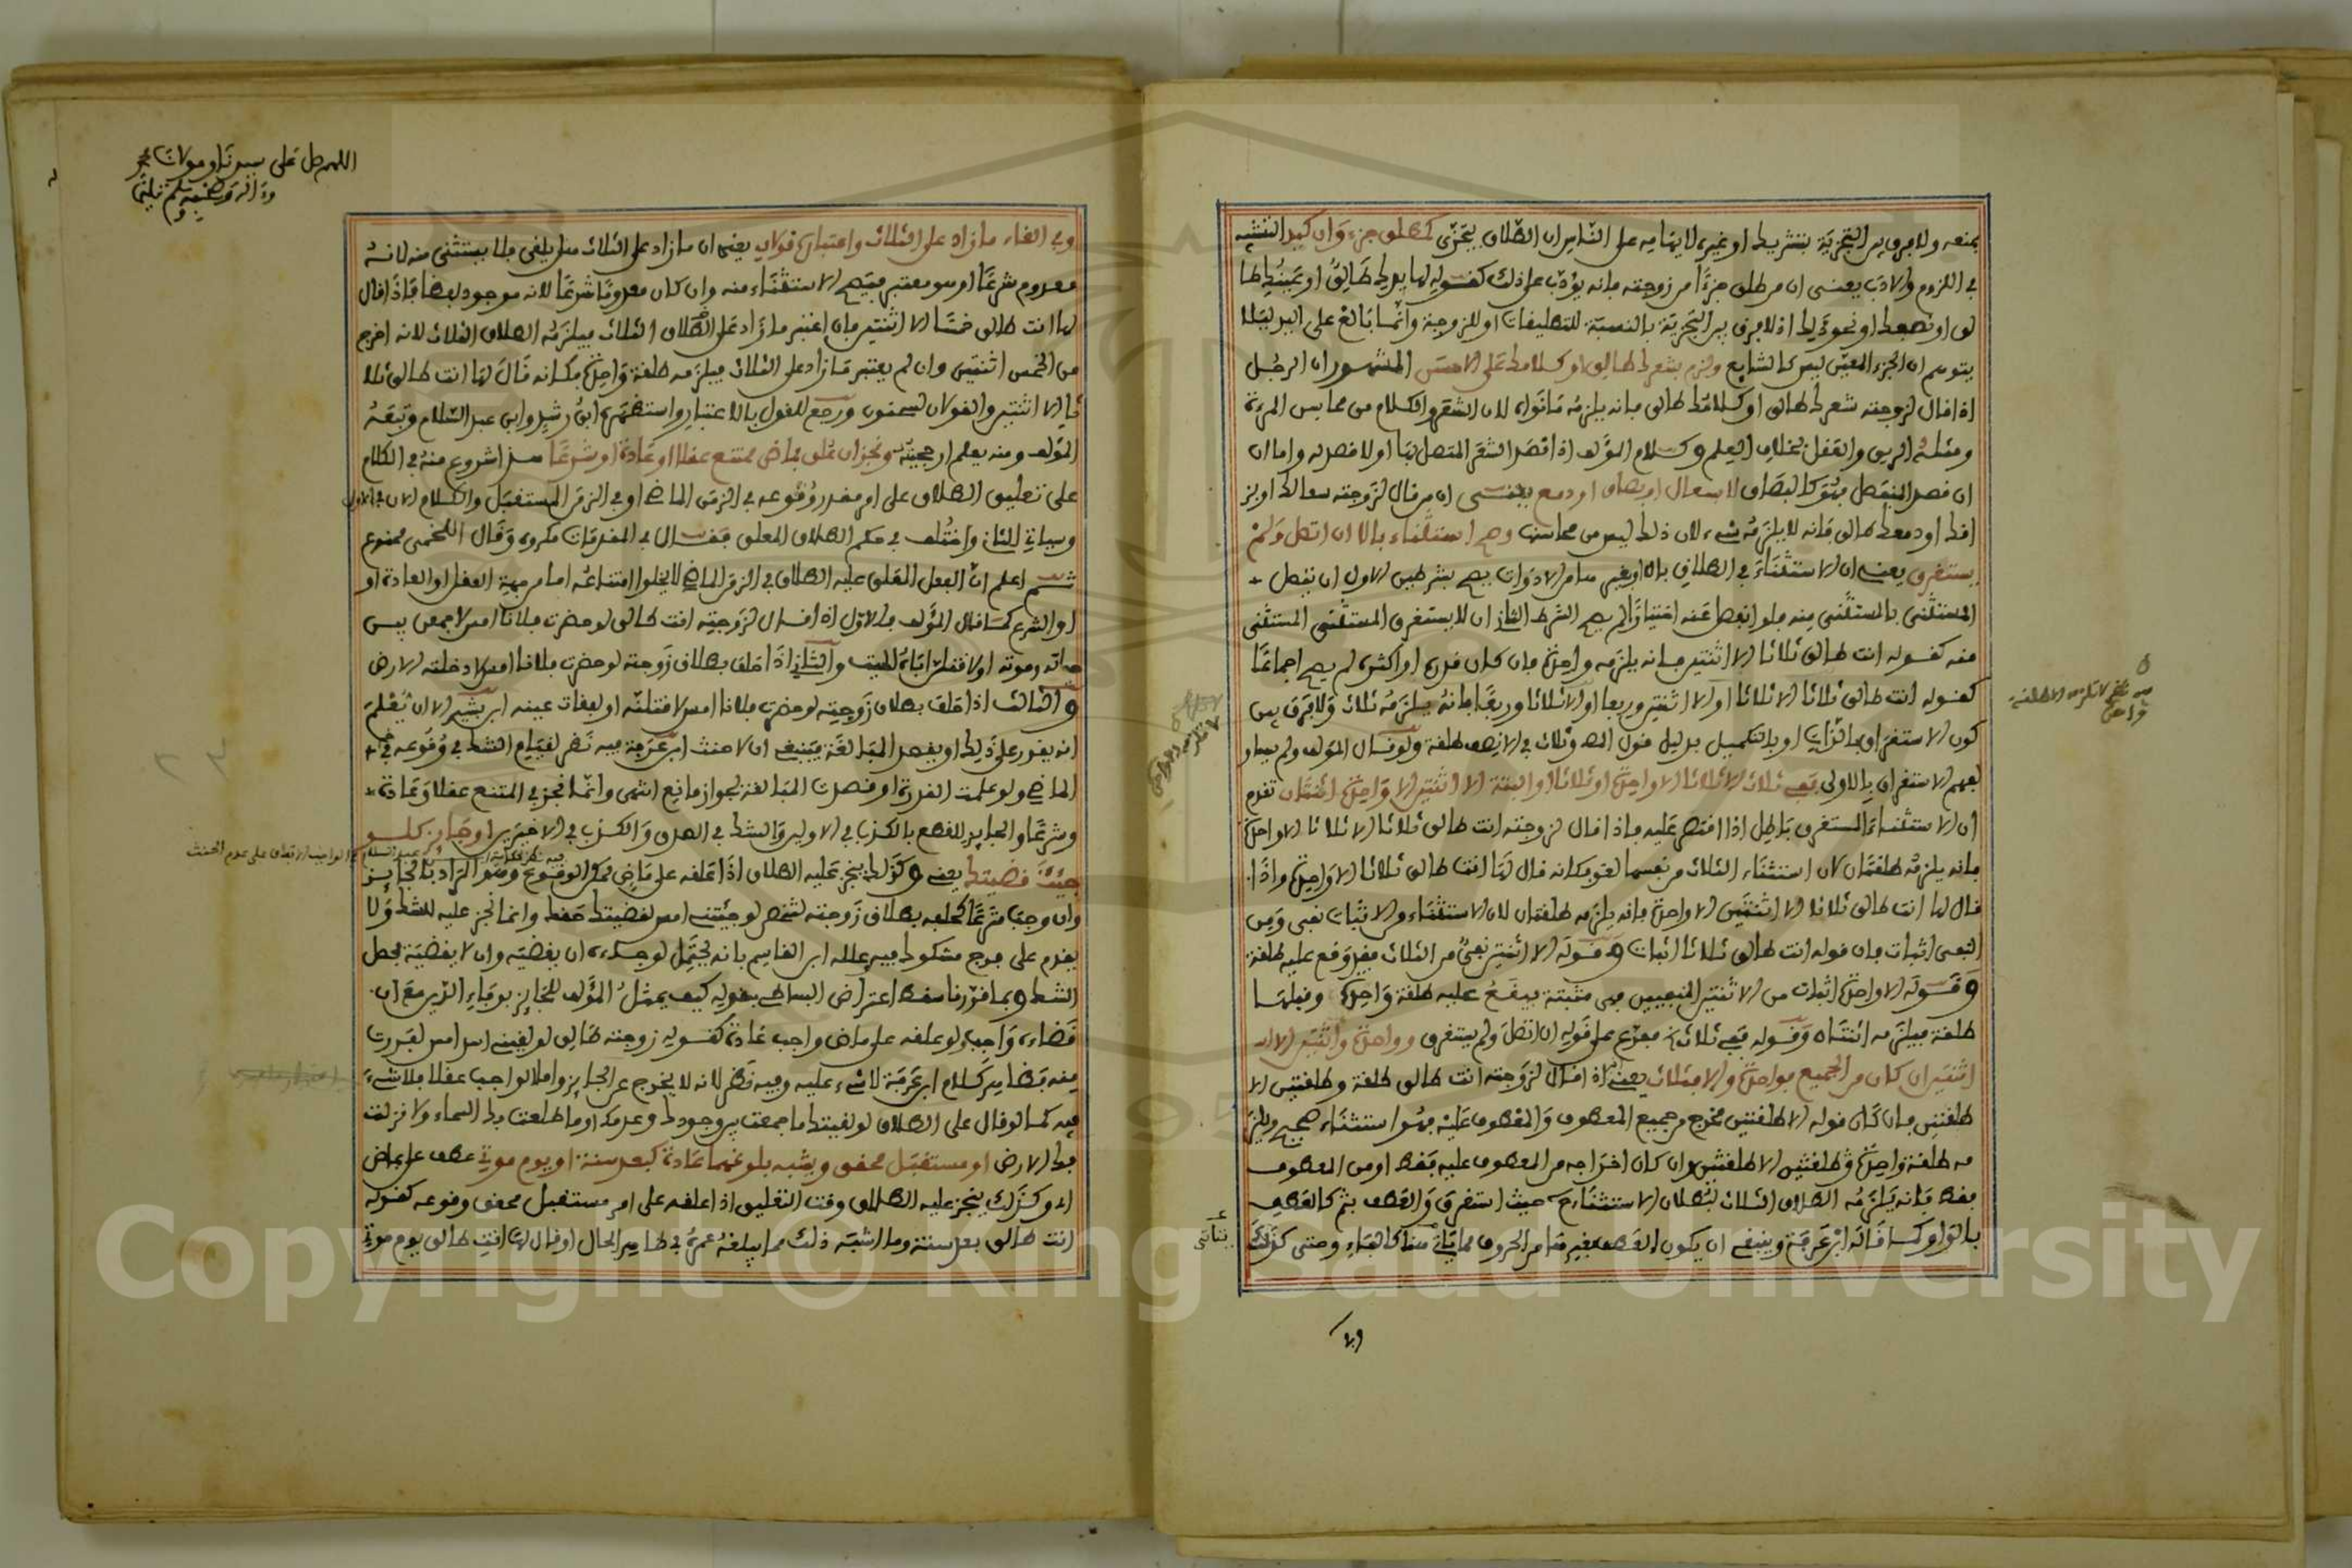 يمنعه ولا فرق بين التجزية بتشريك او غيره لايهامه على الناس ان الطلاق يتجزى كمطلق جزء وان كيد التشبيه
في اللزوم والادب يعنى ان من طلق جزءا من زوجته فانه يؤدب على ذلك كقوله لها يدك طالق او عينك طا
لق او نصفك او نحو ذلك اذ لا فرق بين التجزية بالنسبة للتطليقات او للزوجة وانما بالغ على اليد ليلا
يتوهم ان الجزء المعين ليس كالشايع ولزم بشعرك طالق او كلامك على الاحسن المشهور ان الرجل
اذا قال لزوجته شعرك طالق او كلامك طالق فانه يلزمه ما نواه لان الشعر والكلام من محاسن المرءة
ومثله الريق والعقل بخلاف العلم وكلام المؤلف اذا قصد الشعر المتصل بها او لا قصد له واما ان
ان قصد المنفصل فهو كالبصاق لا سعال او بصاق او دمع يعنى ان من قال لزوجته سعالك او بز
اقك او دمعك طالق فانه لا يلزمه شيء لان ذلك ليس من محاسنها وصح استثناء بالا ان اتصل ولم
يستغرق يعنى ان الاستثناء في الطلاق بالا او بغيرها من الادوات يصح بشرطين الاول ان يتصل
المستثنى بالمستثنى منه فلو انفصل عنه اختيارا لم يصح الشرط الثاني ان لا يستغرق المستثنى المستثنى
منه كقوله انت طالق ثلاثا الا اثنتين فانه يلزمه واحدة فان كان قدره او اكثر لم يصح اجماعا
كقوله انت طالق ثلاثا الا ثلاثا او الا اثنتين وربعا او الا ثلاثا وربعا فانه يلزمه ثلاث ولا فرق بين
كون الاستغراق بالذات او بالتكميل بدليل قول المص وثلاث في الا نصف طلقة ولو قال المؤلف ولم يساو
لفهم الاستغراق بالاولى ففي ثلاث الا ثلاثا الا واحدة او ثلاثا او البتة الا اثنتين الا واحدة اثنتان تقدم
ان الاستثناء المستغرق باطل اذا اقتصر عليه فاذا قال لزوجته انت طالق ثلاثا الا ثلاثا الا واحدة
فانه يلزمه طلقتان لان استثناء الثلاث من نفسها لغو فكانه قال لها انت طالق ثلاثا الا واحدة واذا
قال لها انت طالق ثلاثا الا اثنتين الا واحدة فانه يلزمه طلقتان لان الاستثناء من الاثبات نفي ومن
النفي اثبات فان قوله انت طالق ثلاثا اثبات وقوله الا اثنتين نفي من الثلاث فقد وقع عليه طلقة
وقوله الا واحدة اثبات من الاثنتين المنفيين فهي مثبتة فيقع عليه طلقة واحدة وقبلها
طلقة فيلزمه اثنتان وقوله ففي ثلاث مفرع على قوله ان اتصل ولم يستغرق وواحدة واثنتين الا
اثنتين ان كان من الجميع فواحدة والا فثلاث يعنى اذا قال لزوجته انت طالق طلقة وطلقتين الا
طلقتين فان كان قوله الا طلقتين مخرج من جميع المعطوف والمعطوف عليه فهو استثناء صحيح ويلز
مه طلقة واحدة وطلقتين الا طلقتين وان كان اخراجه من المعطوف عليه فقط او من المعطوف
فقط فانه يلزمه الطلاق الثلاث لبطلان الاستثناء ح حيث استغرق والعطف بثم كالعطف
بالواو كما قاله ابن عرفة وينبغي ان يكون العطف بغيرها من الحروف مما يتاتى هنا كالفاء وحتى كذلك
وفي
وفي الغاء ما زاد على الثلاث واعتباره قولان يعنى ان ما زاد على الثلاث هل يلغى فلا يستثنى منه لانه
معدوم شرعا او هو معتبر فيصح الاستثناء منه وان كان معدوما شرعا لانه موجود لفظا فاذا قال
لها انت طالق خمسا الا اثنتين فان اعتبر ما زاد على الطلاق الثلاث فيلزمه الطلاق الثلاث لانه اخرج
من الخمس اثنتين وان لم يعتبر ما زاد على الثلاث فيلزمه طلقة واحدة فكانه قال لها انت طالق ثلا
ثا الا اثنتين والقولان لسحنون ورجع للقول بالاعتبار واستظهره ابن رشد وابن عبد السلام وتبعه
المؤلف ومنه يعلم ارجحيته ونجز ان علق بماض ممتنع عقلا او عادة او شرعا هذا شروع منه في الكلام
على تعليق الطلاق على امر مقدر وقوعه في الزمن الماضي او في الزمن المستقبل والكلام الان في الاول
وسياتي الثاني واختلف في حكم الطلاق المعلق فقال في المقدمات مكروه وقال اللخمي ممنوع
ثم اعلم ان الفعل المعلق عليه الطلاق في الزمن الماضي لا يخلوا امتناعه اما من جهة العقل او العادة او
او الشرع كما قال المؤلف فالاول اذا قال لزوجته انت طالق لو حضرت فلانا امس لاجمعن بين
حياته وموته او لاقتلن اباه الميت والثاني اذا حلف بطلاق زوجته لو حضرت فلانا امس لادخلته الارض
والثالث اذا حلف بطلاق زوجته لو حضرت فلانا امس لاقتلنه او لفقات عينه ابن بشير الا ان يعلم
انه يقدر على ذلك او يقصد المبالغة فينبغي ان لا حنث ابن عرفة فيه نظر لقيام الشك في وقوعه في
الماضي ولو علمت القدرة او قصدت المبالغة لجواز مانع انتهى وانما نجز في الممتنع عقلا وعادة
وشرعا والجايز للقطع بالكذب في الاولين والشك في الصدق والكذب في الاخيرين او جايز كلو
جيت قضيتك يعنى وكذلك ينجز عليه الطلاق اذا علقه على ماض ممكن الوقوع وهو المراد بالجايز
وان وجب شرعا كحلفه بطلاق زوجته لشخص لو جئتني امس لقضيتك حقك وانما نجز عليه للشك ولا
يقدم على فرج مشكوك فيه علله ابن القاسم بانه يحتمل لو جاءه ان يقضيه وان لا يقضيه فحصل
الشك وبما قررنا سقط اعتراض البساطي بقوله كيف يمثل المؤلف للجايز بوفاء الدين مع ان
قضاءه واجب ولو علقه على ماض واجب عادة كقوله زوجته طالق لو لقيني اسد امس لفررت
منه فظاهر كلام ابن عرفة لا شيء عليه وفيه نظر لانه لا يخرج عن الجايز واما الواجب عقلا فلا شيء
فيه كما لو قال علي الطلاق لو لقيتك ما جمعت بين وجودك وعدمك او ما طلعت بك السماء ولا نزلت
بك الارض او مستقبل محقق ويشبه بلوغهما عادة كبعد سنة او يوم موتي عطف على بماض
اى وكذلك ينجز عليه الطلاق وقت التعليق اذا علقه على امر مستقبل محقق وقوعه كقوله
انت طالق بعد سنة وما اشبه ذلك مما يبلغه عمره في ظاهر الحال او قال لها انت طالق يوم موتي
اللهم صل على سيدنا ومولانا محمد
Copyright © King Saud University